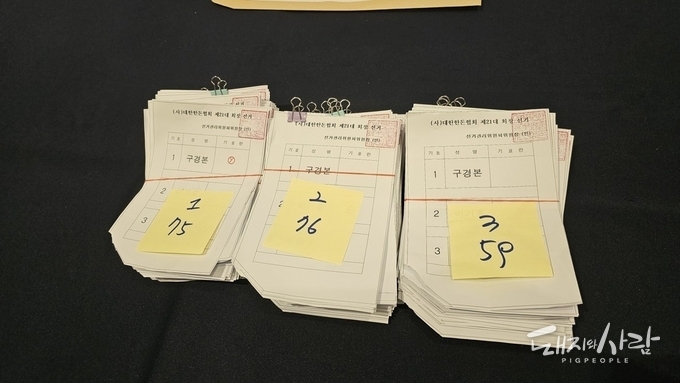 (사)대한한돈협회 제21대 회장 선거
선거관리위원회위원장 (인)
기호 성 명 기 표 란
1 구경본
2
3
1
75
(사)대한한돈협회 제21대 회장 선거
선거관리위원회위원장 (인)
기호 성 명 기 표 란
1 구경본
2
3
2
76
(사)대한한돈협회 제21대 회장 선거
선거관리위원회위원장 (인)
기호 성 명 기 표 란
1 구경본
2
3
3
59
돼지와사람
PIGPEOPLE